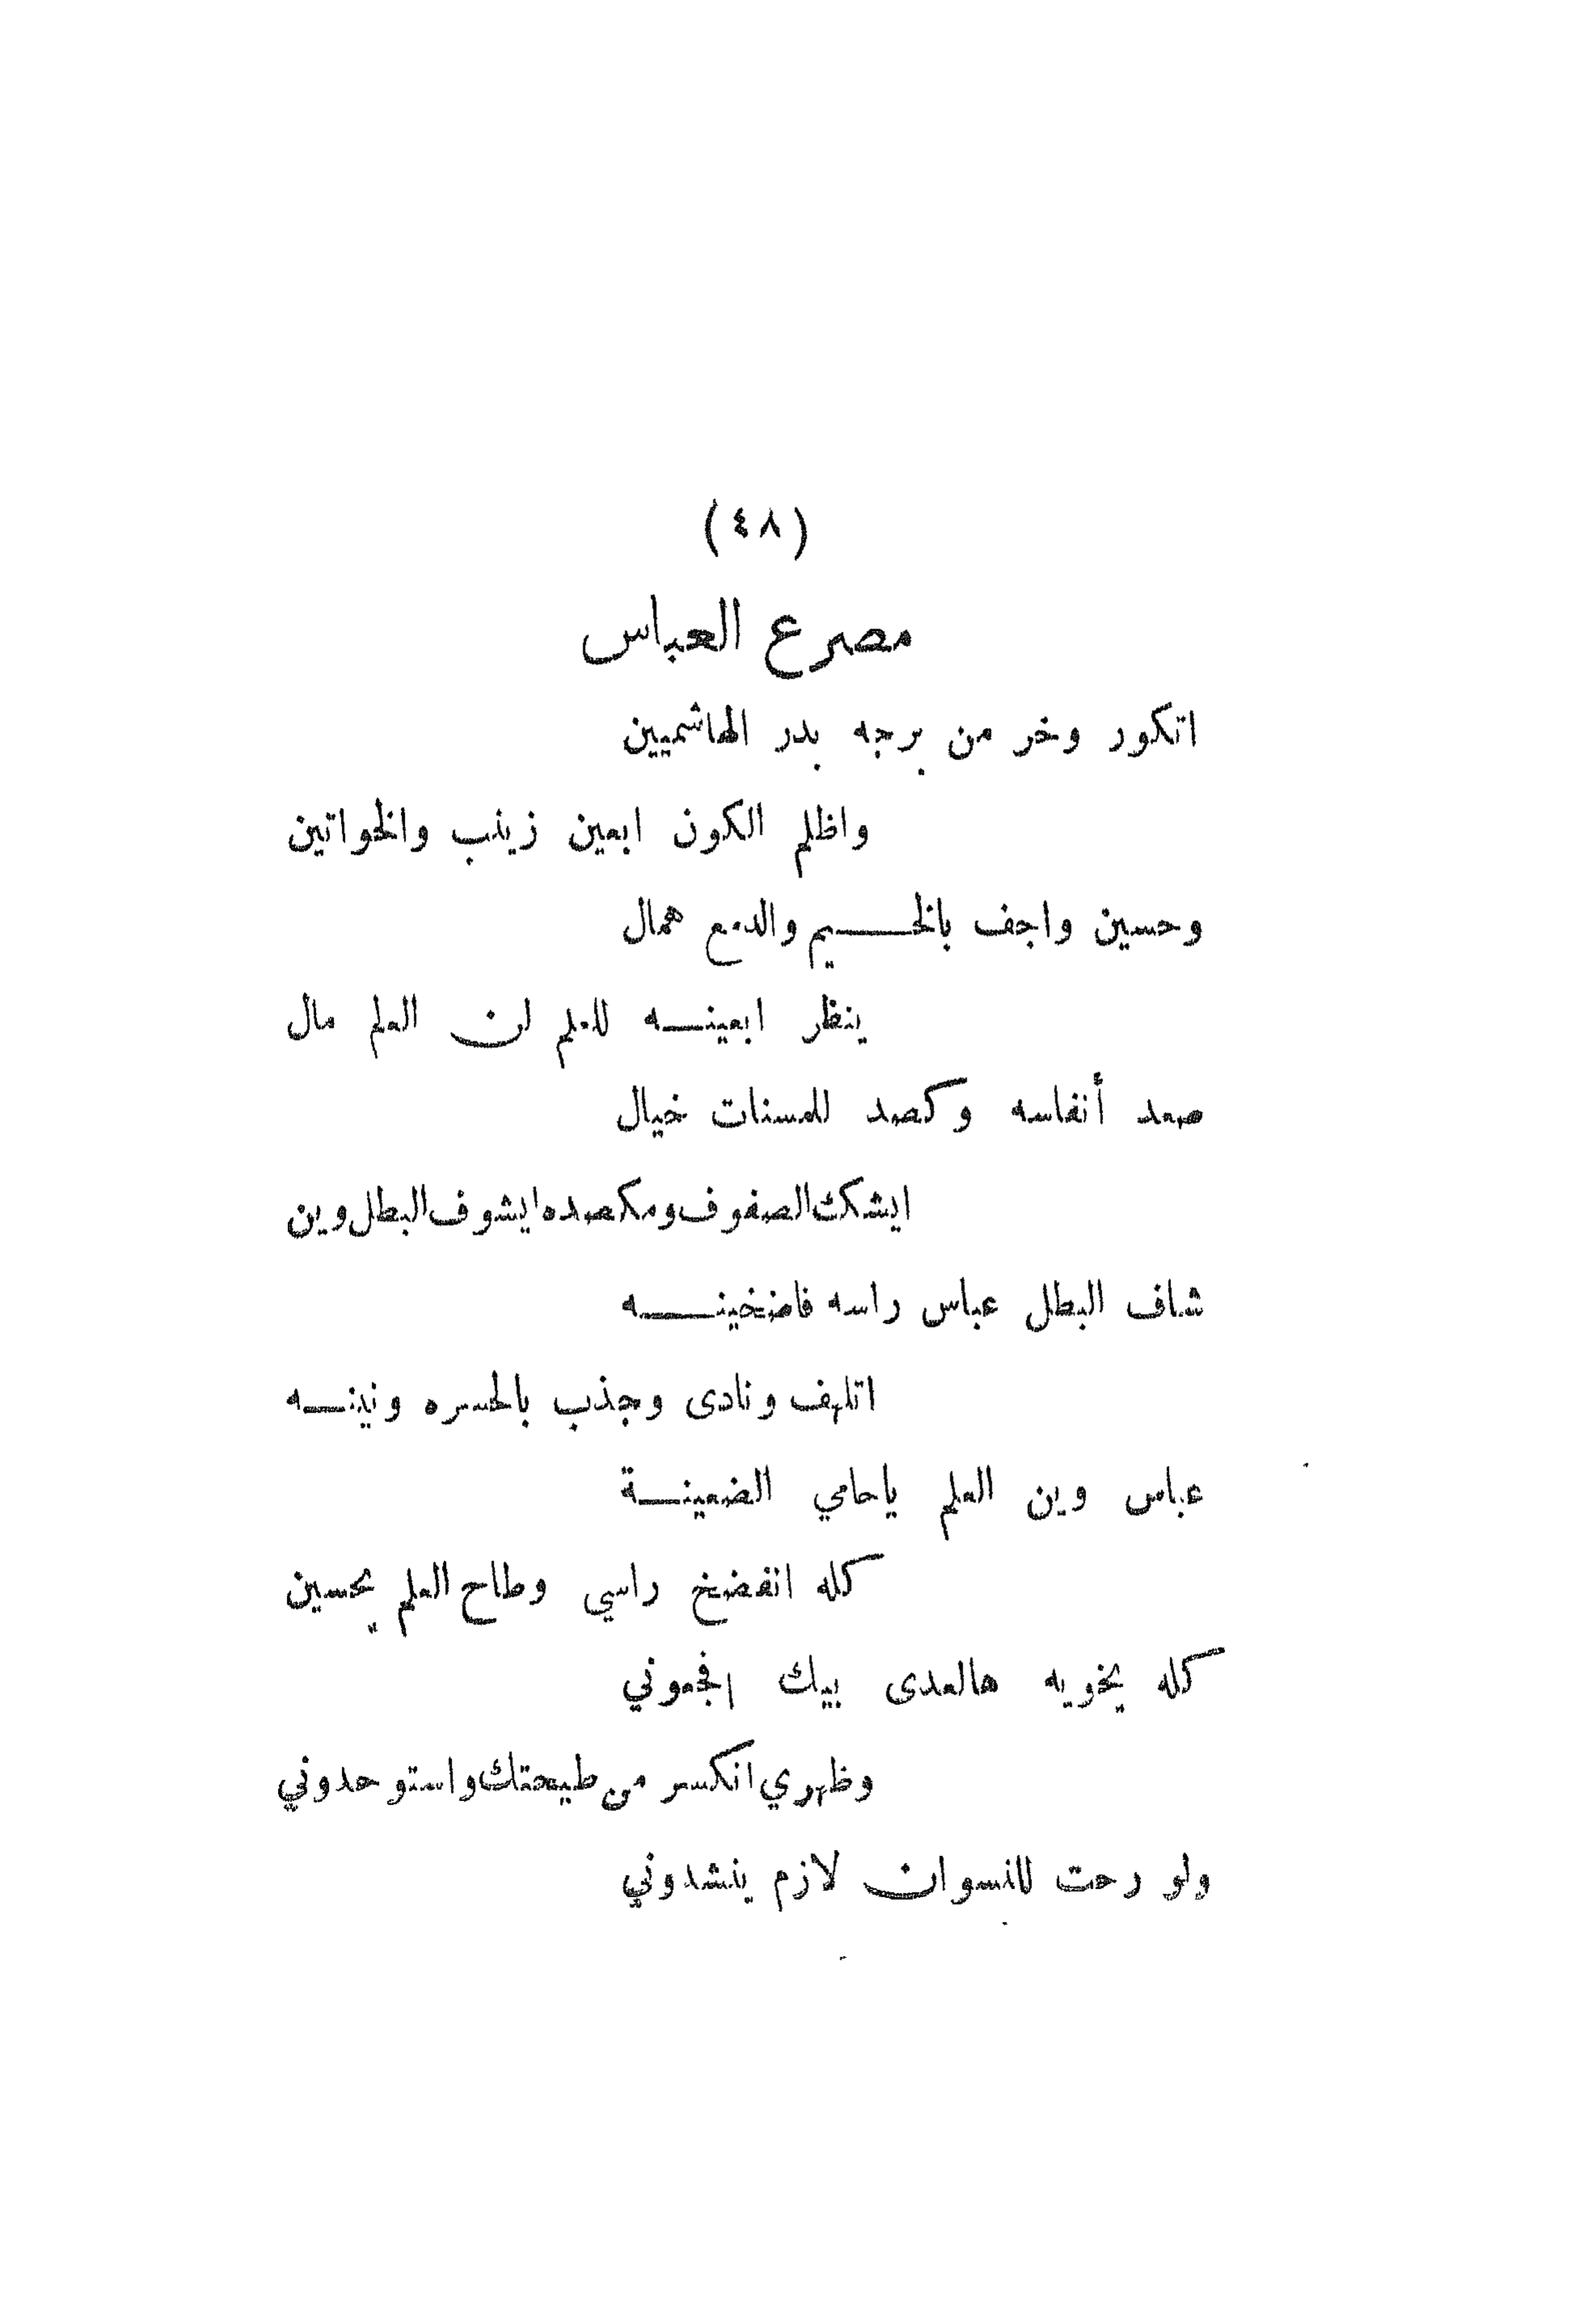 (٤٨)
مصرع العباس
اتكور وخر من برجه بدر الهاشميين
واظلم الكون ابعين زينب والخواتين
وحسين واجف بالخـــــيم والدمع همال
ينظر ابعينـــه للعلم لن العلم مال
صعد أنفاسه وكصد للمسنات خيال
ايشكك الصفوف ومكصده ايشوف البطل وين
شاف البطل عباس راسه فاضخينـــــه
اتلهف ونادى وجذب بالحسره ونينـــه
عباس وين العلم ياحامي الضعينـــة
كله انفضخ راسي وطاح العلم يحسين
كله يخويه هالعدى بيك افجعوني
وظهري انكسر من طيحتك واستوحدوني
ولو رحت للنسوان لازم ينشدوني